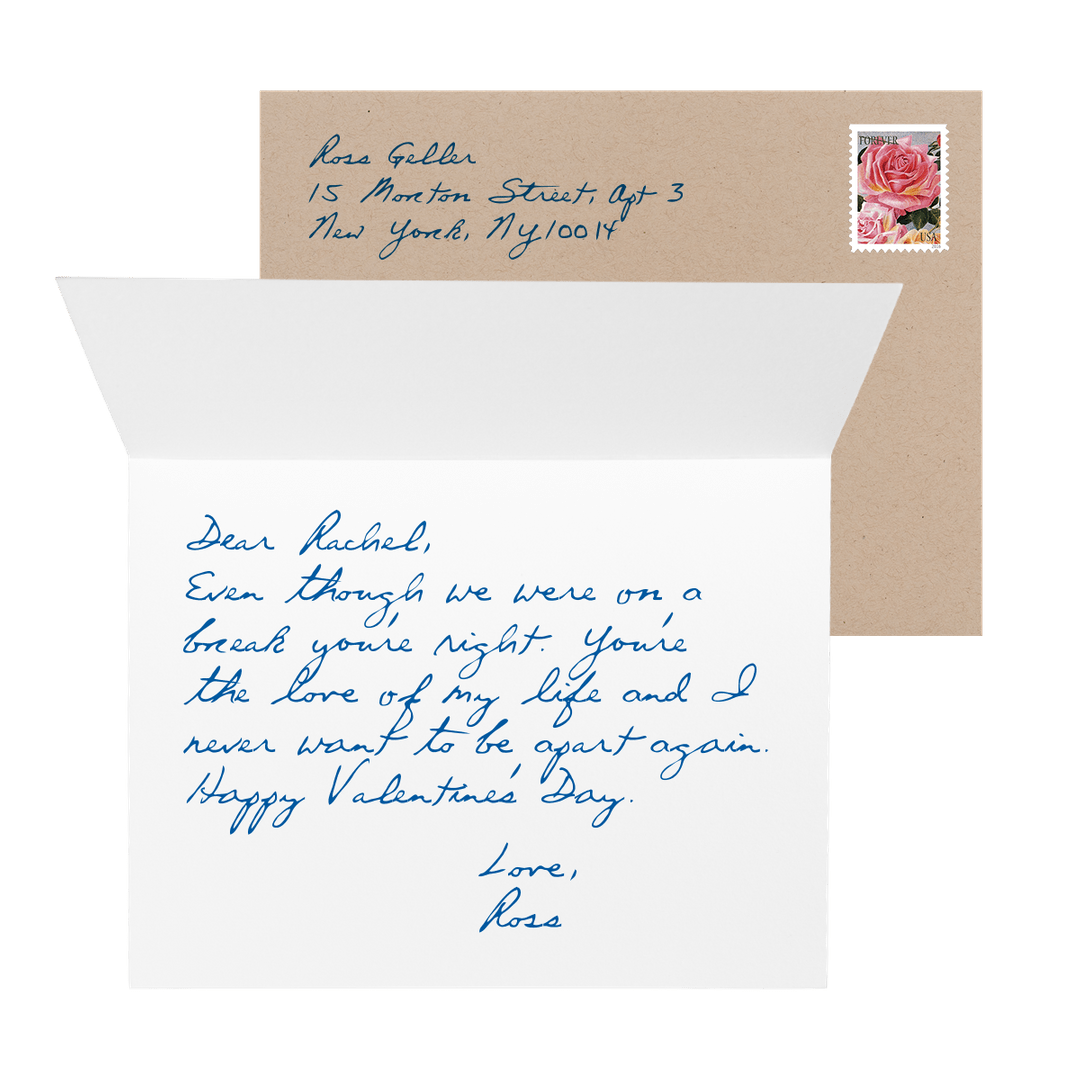 Ross Geller
15 Morton Street, Apt 3
New York, NY 10014
FOREVER
USA
Dear Rachel,
Even though we were on a
break you're right. You're
the love of my life and I
never want to be apart again.
Happy Valentine's Day.
Love,
Ross